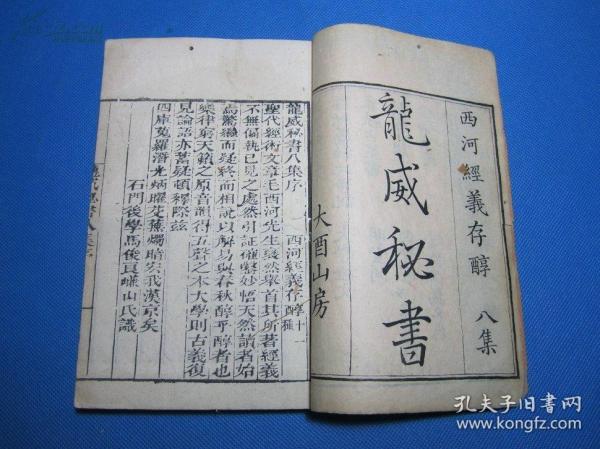 西河經義存醇 八集
龍威秘書
大酉山房
龍威秘書八集序 西河經義存醇十一種
聖代經術文章毛西河先生裒然舉首其所著經義
不無偏執已見之處然引証確鑿妙悟天然讀者始
焉驚繼而疑終而相說以解易與春秋醇乎醇者也
樂律窮天籟之原音韻得五聲之本大學則古義復
見論語亦舊疑頓釋際茲
四庫蒐羅潛光炳曜蕉燭暗宏我漢京矣
石門後學馬俊良嵰山氏識
孔夫子旧书网
www.kongfz.com